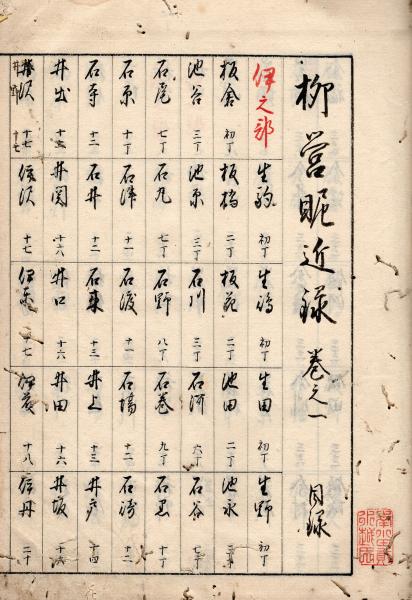 柳營昵近録 巻之一 目録
伊之部 生駒 初丁 生嶋 初丁 生田 初丁 生野 初丁
板倉 初丁 板橋 二丁 板花 二丁 池田 二丁 池永 三丁
池谷 三丁 池原 三丁 石川 三丁 石河 六丁 石谷 七丁
石尾 七丁 石丸 七丁 石野 八丁 石巻 九丁 石黒 十丁
石原 十丁 石津 十一 石渡 十一 石場 十二 石崎 十二
石寺 十二 石井 十二 十三 井上 十三 井戸 十四
井出 十五 井関 十六 井口 十六 井田 十六 井坂 十六
井沢 十七 伊沢 十七 伊東 十七 十八 伊丹 二十